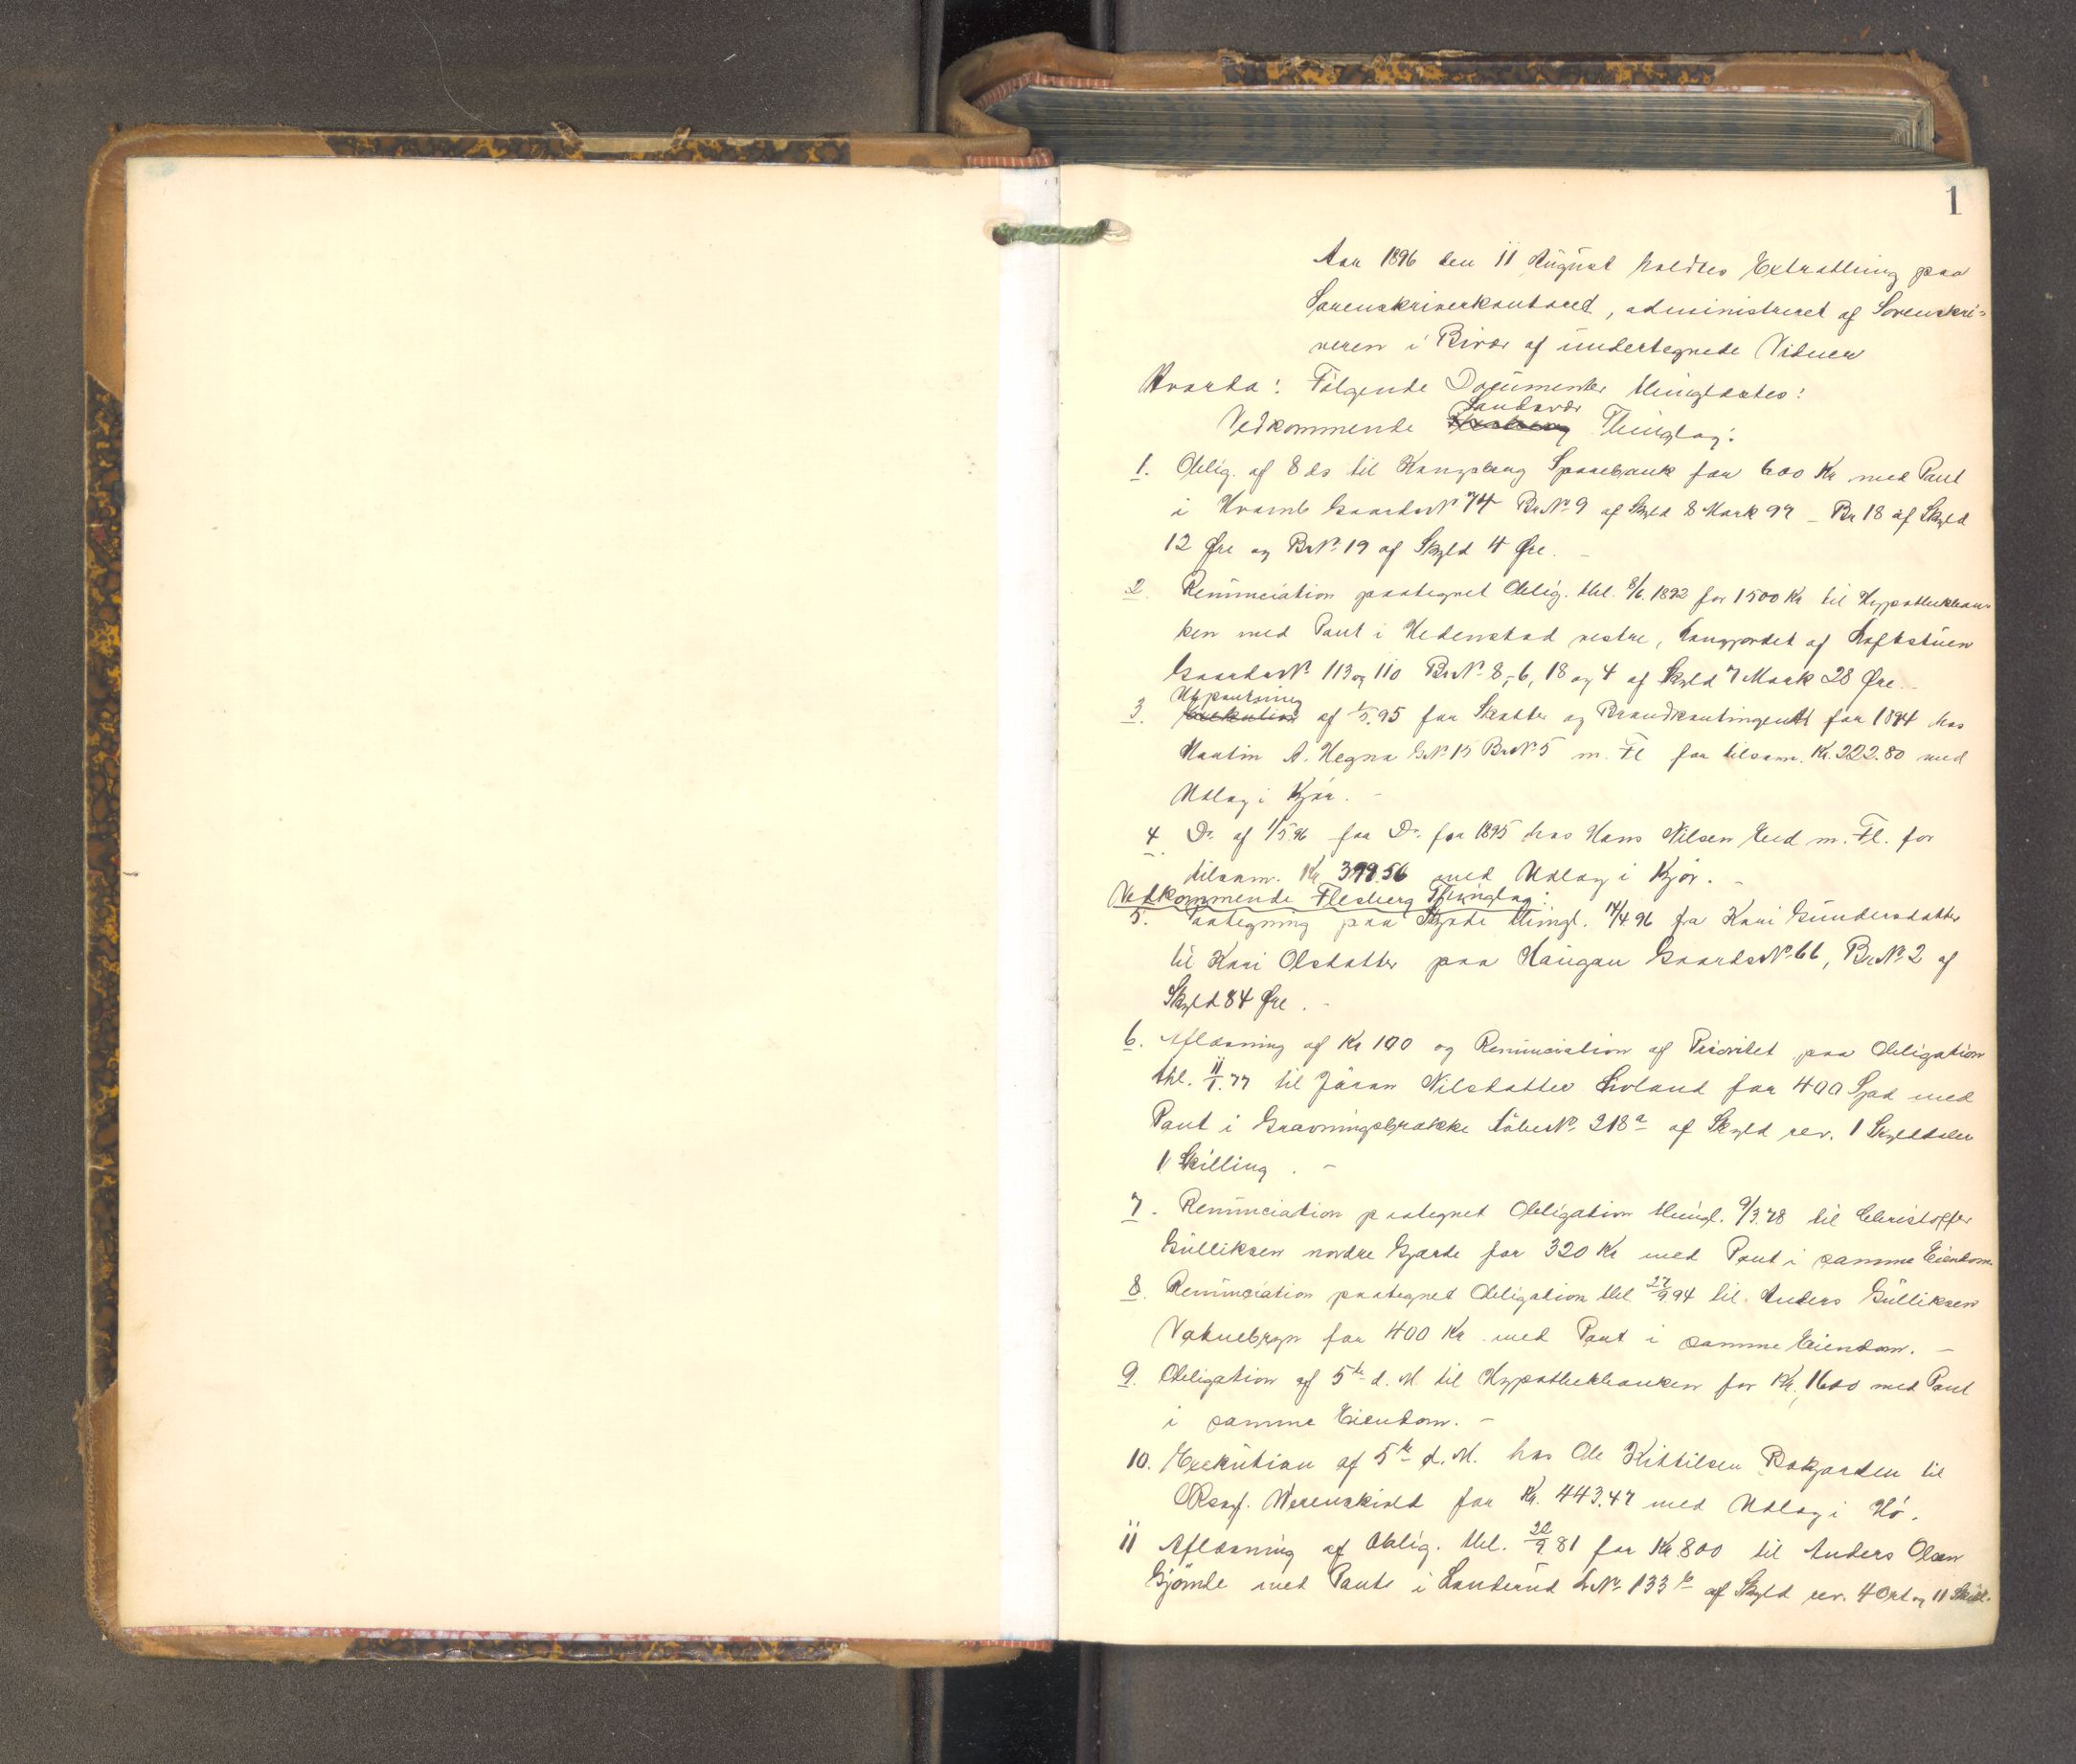 1
Aar 1896 den 11 August holdtes Extrathing paa
Sorenskriverkontoret, administreret af Sorenskri-
veren i Bivær af undertegnede Vidner
Hvorda: Følgende Documenter thinglæstes:
Sandsvær
Vedkommende Thinglag:
1. Oblig. af 8 ds til Kongsberg Sparebank for 600 Kr med Pant
i Hvamb Gaards No 74 Br No 9 af Skyld 8 Mark 97 – Br 18 af Skyld
12 Øre og Br No 19 af Skyld 4 Øre. –
2. Renunciation paategnet Oblig. thl. 8/6. 1892 for 1500 Kr til Hypothekban-
ken med Pant i Hedenstad vestre, Langjordet af Loftstuen
Gaards No 113 og 110 Br No 8, 6, 18 og 4 af Skyld 7 Mark 28 Øre. –
Udpantning
3. Exekution af 1/5. 95 for Skatter og Brandkontingent for 1894 hos
Martin A. Hegna G No 15 Br No 5 m. Fl for tilsam. Kr. 222.80 med
Udlæg i Kjør. –
4. Do. af 1/5 96 for Do. for 1895 hos Hans Nilsen Eid m. Fl. for
tilsam. Kr 399.56 med Udlæg i Kjør. –
Vedkommende Flesberg Thinglag:
5. Paategning paa Skjøde thingl. 14/4 96 fra Kari Gundersdatter
til Kari Olsdatter paa Haugan Gaards No 66, Br No 2 af
Skyld 84 Øre. –
6. Aflæsning af Kr 100 og Renunciation af Prioritet paa Obligation
thl. 11/1. 77 til Jøran Nilsdatter Lovland for 400 Spd med
Pant i Gravningsbrække Løbe No 218 a af Skyld rev. 1 Skylddaler
1 Skilling. –
7. Renunciation paategnet Obligation thingl. 9/3. 78 til Christoffer
Gulliksen nordre Gjærde for 320 Kr med Pant i samme Eiendom.
8. Renunciation paategnet Obligation thl 27/9 94 til Anders Gulliksen
Vatnebryn for 400 Kr. med Pant i samme Eiendom. –
9. Obligation af 5te d. M til Hypothekbanken for Kr. 1600 med Pant
i samme Eiendom. –
10. Exekution af 5te d. M. hos Ole Kittilsen Bakjorden til
ORsagf. Werenskiold for Kr. 443.47 med Udlæg i Hø.
11 Aflæsning af Oblig. thl. 22/9 81 for Kr. 800 til Anders Olsen
Gjømle med Pant i Landerud L No. 133 b af Skyld rev. 4 Ort og 11 Skill.